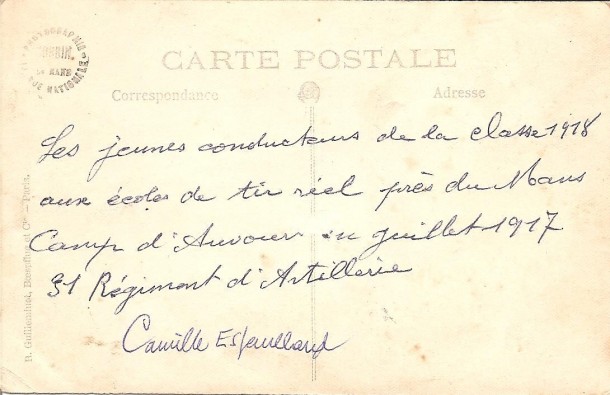 CARTE POSTALE
Correspondance
Adresse
Les jeunes conducteurs de la classe 1918
aux écoles de tir réel près du Mans
Camp d'Auvours en juillet 1917
31 Régiment d'Artillerie
Camille
R. Guilleminot, Bœspflug et Cie — Paris.